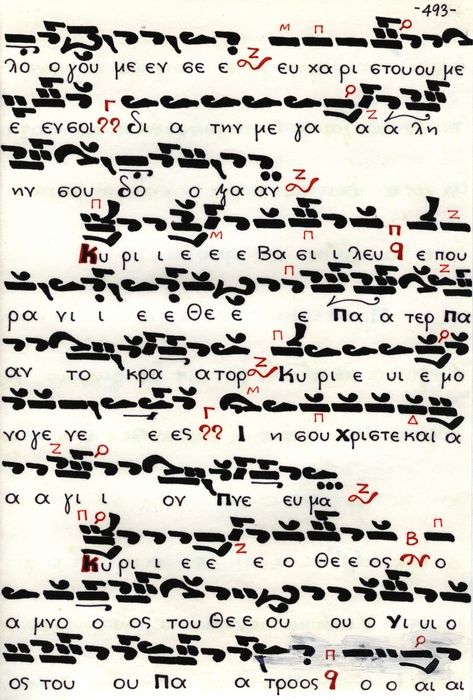 -493-
λο ο γου με εν σε ε ευ χα ρι στου ου με
ε εν σοι δι α την με γα α α λη
ην σου δο ο γα αν
Κυ ρι ι ε ε ε Βα σι ι λευ ε που
ρα νι ι ε ε Θε ε ε Πα α τερ Πα
αν το κρα α τορ Κυ ρι ε υι ε μο
νο γε νε ε ες Ι η σου Χριστε και α
α α γι ι ον Πνε ευ μα
Κυ ρι ι ε ε ε ο Θε ε ος ο
α μνο ο ος του Θε ε ου ου ο Υι υι ο
ος του ου Πα α τρο ος ο ο αι αι